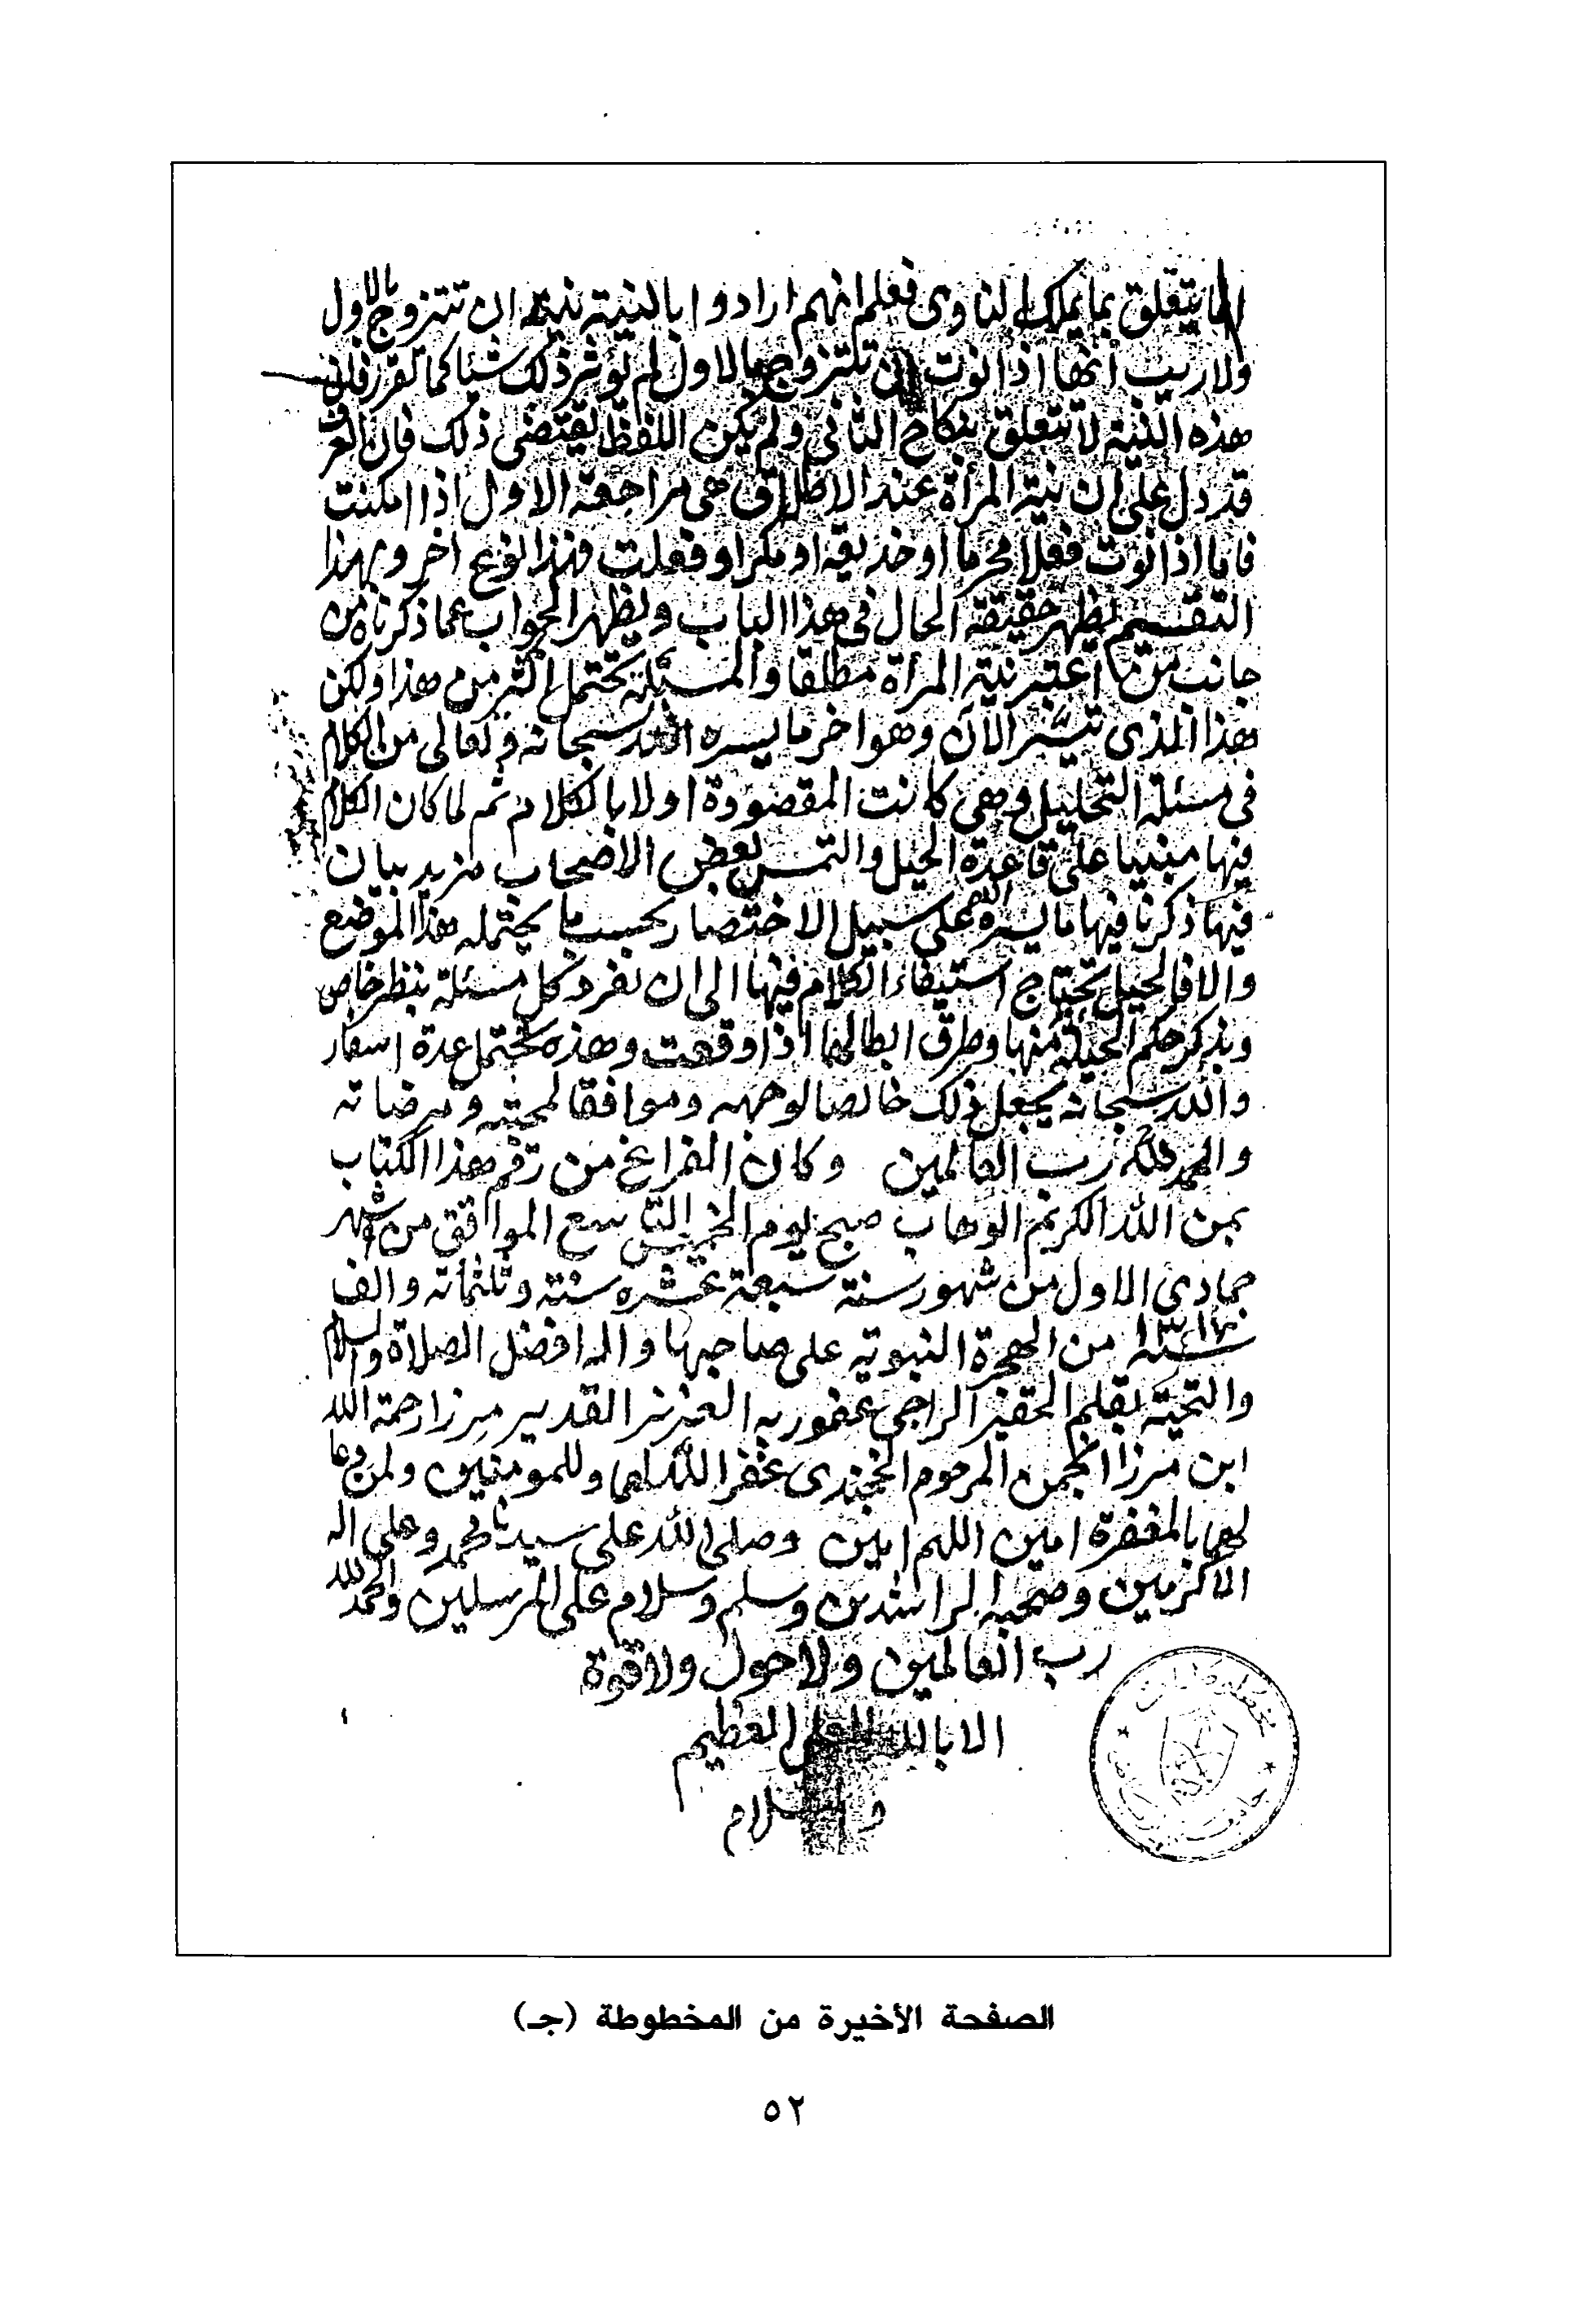 انما يتعلق بما يملك الناوى فعلم انهم ارادوا بالنية نية ان تتزوج بالاول
ولا ريب انها اذا نوت ان تتزوج بالاول لم تؤثر ذلك شيئا كما تقرر فان
هذه النية لا تتعلق بنكاح الثاني ولم يكن اللفظ يقتضي ذلك فان العرف
قد دل على ان نية المرأة عند الاطلاق هي مراجعة الاول اذا امكنت
فاما اذا نوت فعلا محرما او خديعة او مكرا وفعلت فهذا نوع اخر وبهذا
التقسيم يظهر حقيقة الحال في هذا الباب ويظهر الجواب عما ذكرناه من
جانب من اعتبر نية المرأة مطلقا والمسئلة تحتمل اكثر من هذا ولكن
هذا الذى تيسر الآن وهو اخر ما يسره الله سبحانه وتعالى من الكلام
في مسئلة التحليل وهي كانت المقصودة اولا بالكلام ثم لما كان الكلام
فيها مبنيا على قاعدة الحيل والتمس بعض الاصحاب مزيد بيان
فيها ذكرنا فيها ما يسره الله على سبيل الاختصار بحسب ما يحتمله هذا الموضع
والا فالحيل تحتاج استيفاء الكلام فيها الى ان نفرد كل مسئلة بنظر خاص
ويذكر حكم الحيلة منها وطرق ابطالها اذا وقعت وهذه تحتمل عدة اسفار
والله سبحانه يجعل ذلك خالصا لوجهه وموافقا لمحبته ومرضاته
والحمد لله رب العالمين وكان الفراغ من رقم هذا الكتاب
بمن الله الكريم الوهاب صبح يوم الخميس التاسع الموافق من شهر
جمادى الاول من شهور سنة سبعة عشره سنة وثلثمائة والف
سنة ١٣١٧ من الهجرة النبوية على صاحبها واله افضل الصلاة والسلام
والتحية بقلم الحقير الراجي عفو ربه العزيز القدير ميرزا رحمة الله
ابن مرزا المرحوم الخجندى غفر الله لهما وللمومنين ولمن دعا
لهما بالمغفرة امين اللهم امين وصلى الله على سيدنا محمد وعلى اله
الاكرمين وصحبه الراشدين وسلم وسلام على المرسلين والحمد لله
رب العالمين ولا حول ولا قوة
الا بالله العلي العظيم
والسلام
الصفحة الأخيرة من المخطوطة (جـ)
٥٢